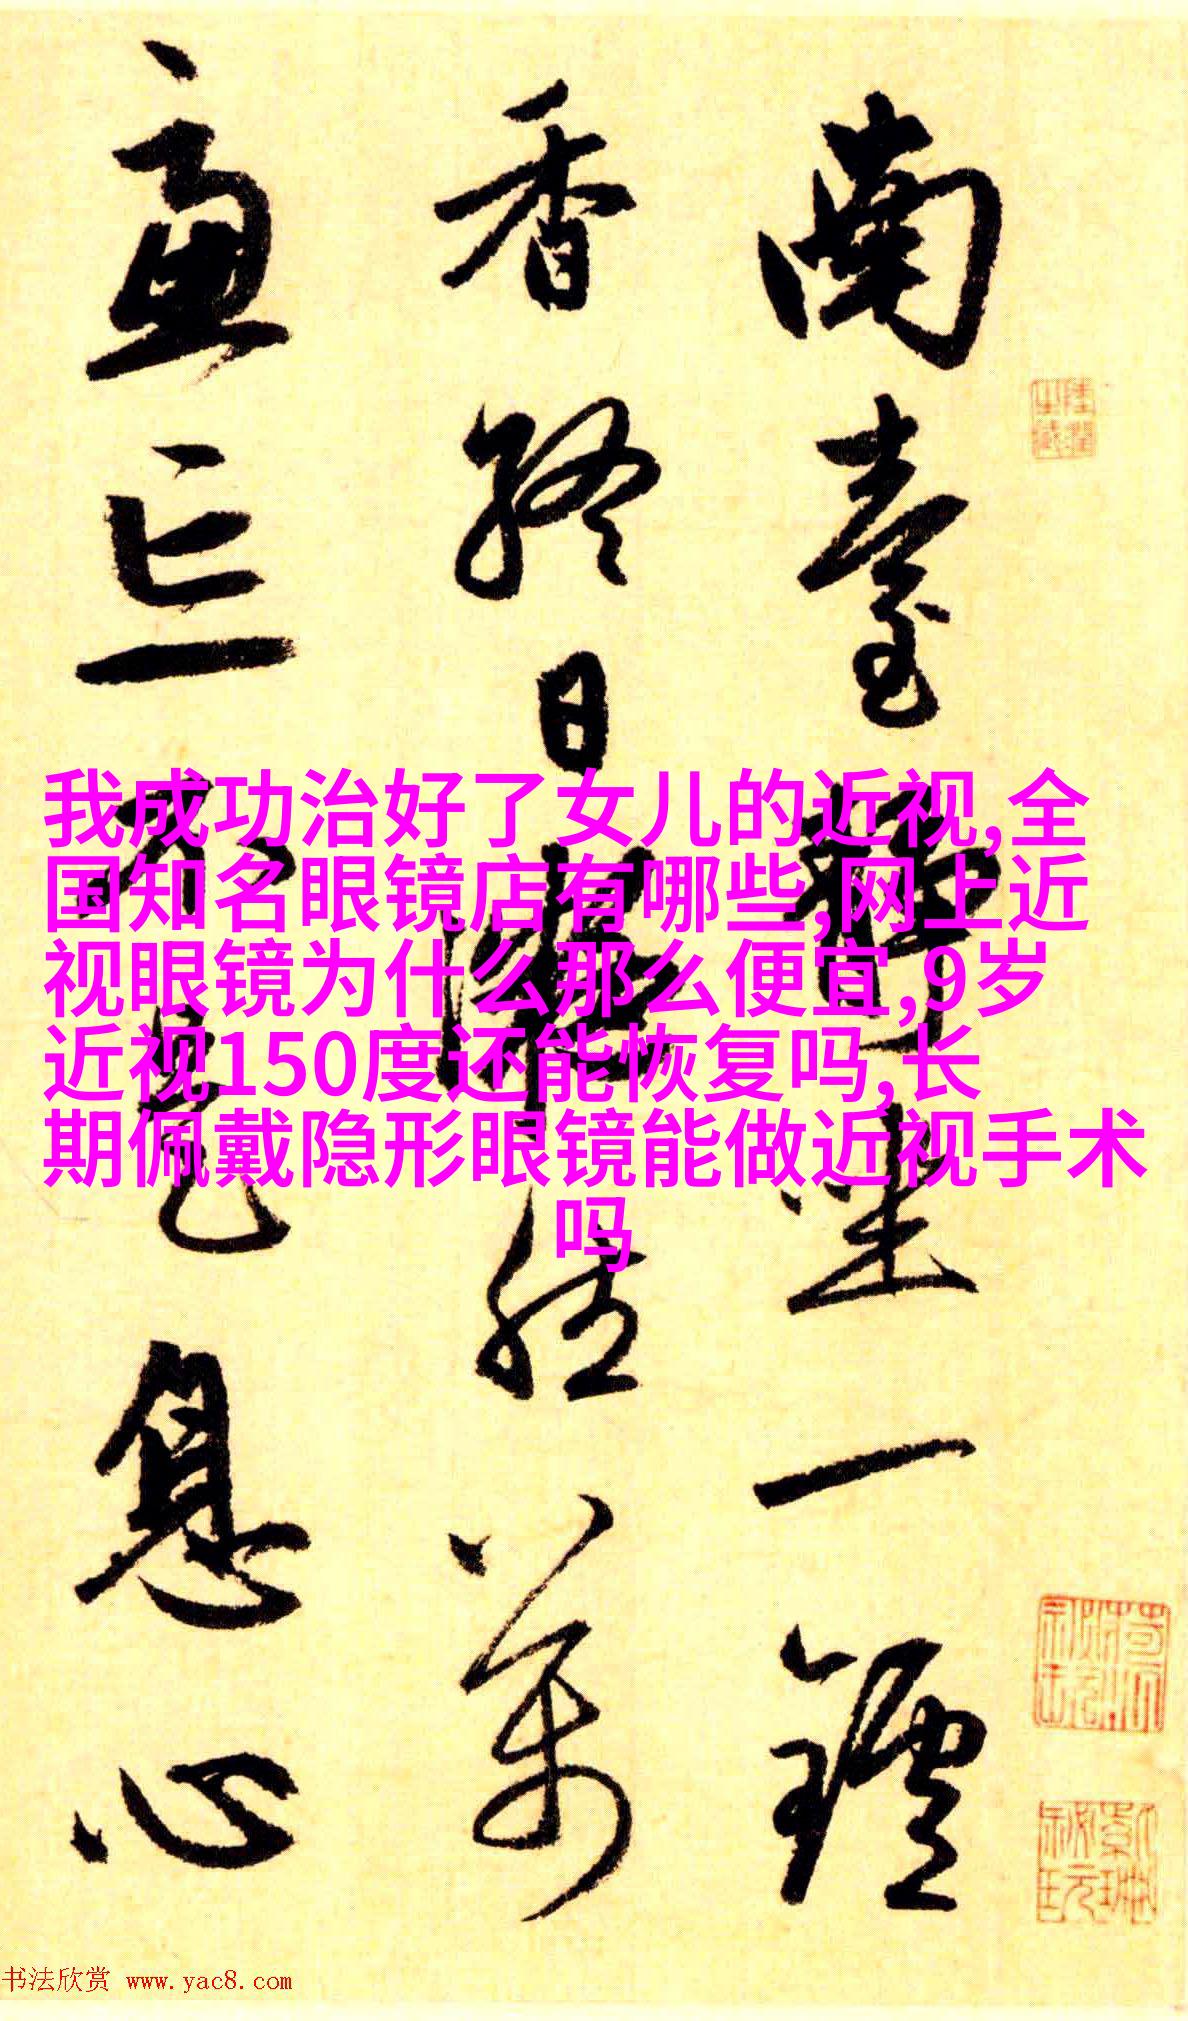 南臺靜坐一鑪
香終日凝然萬
慮忘不是息心
我成功治好了女儿的近视,全
国知名眼镜店有哪些,网上近
视眼镜为什么那么便宜,9岁
近视150度还能恢复吗,长
期佩戴隐形眼镜能做近视手术
吗
书法欣赏 www.yac8.com